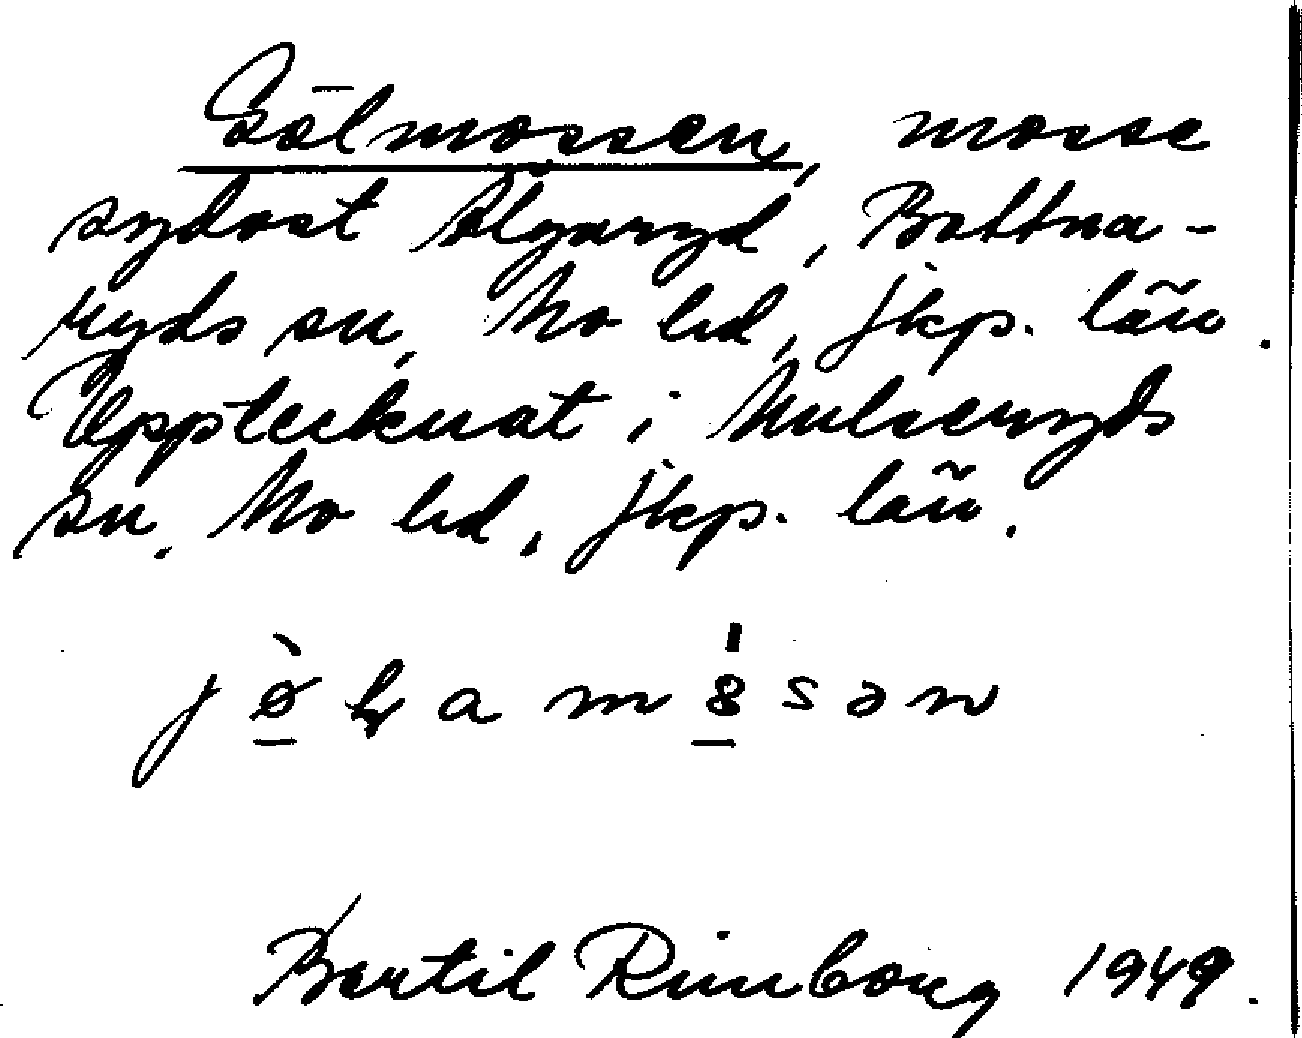 Gölmossen, mosse
sydost Älgaryd, Bottna-
ryds sn, Mo hd, Jkp. län.
Upptecknat i Mulseryds
sn, Mo hd, Jkp. län.
Bertil Rimborg 1949.